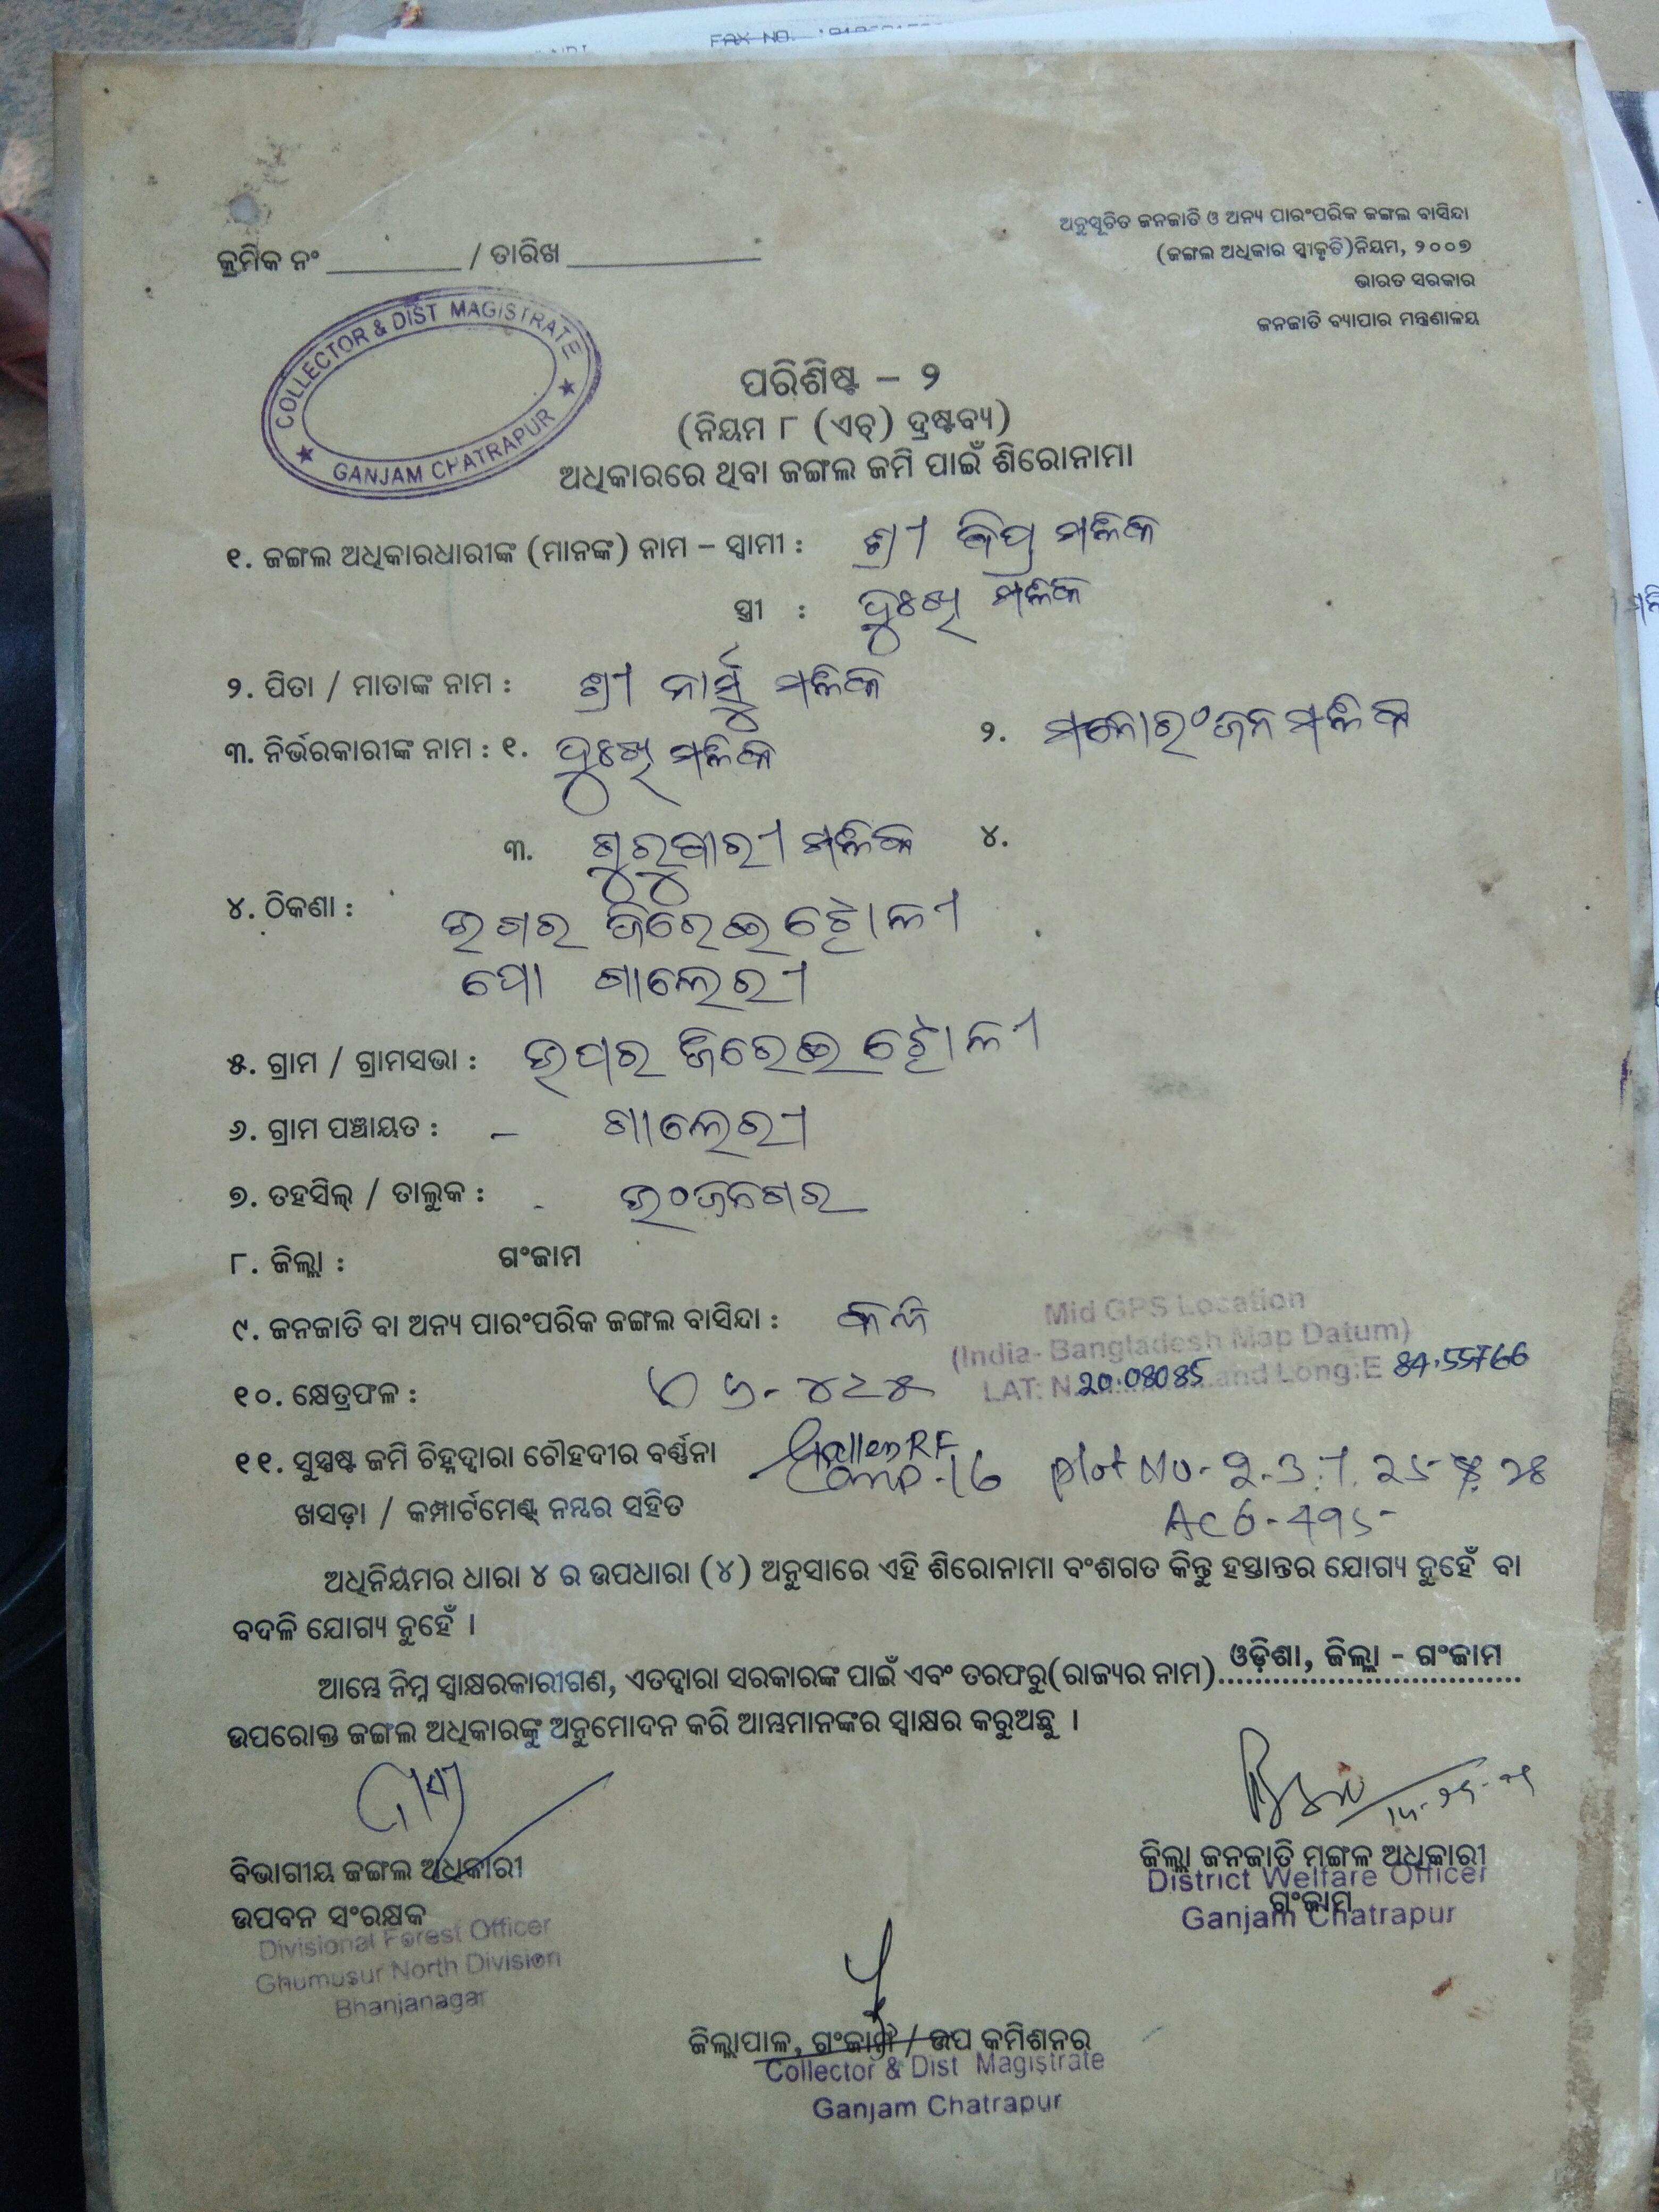 FAX NO.
ଅନୁସୂଚିତ ଜନଜାତି ଓ ଅନ୍ୟ ପାରଂପରିକ ଜଙ୍ଗଲ ବାସିନ୍ଦା
(ଜଙ୍ଗଲ ଅଧିକାର ସ୍ୱୀକୃତି)ନିୟମ, ୨୦୦୭
ଭାରତ ସରକାର
ଜନଜାତି ବ୍ୟାପାର ମନ୍ତ୍ରଣାଳୟ
କ୍ରମିକ ନଂ ________ / ତାରିଖ ____________
COLLECTOR & DIST MAGISTRATE
GANJAM CHATRAPUR
ପରିଶିଷ୍ଟ – ୨
(ନିୟମ ୮ (ଏଚ୍) ଦ୍ରଷ୍ଟବ୍ୟ)
ଅଧିକାରରେ ଥିବା ଜଙ୍ଗଲ ଜମି ପାଇଁ ଶିରୋନାମା
୧. ଜଙ୍ଗଲ ଅଧିକାରଧାରୀଙ୍କ (ମାନଙ୍କ) ନାମ – ସ୍ୱାମୀ : ଶ୍ରୀ ମଲିକ
ସ୍ତ୍ରୀ : ଦୁଃଖି ମଲିକ
୨. ପିତା / ମାତାଙ୍କ ନାମ : ଶ୍ରୀ ମଲିକ
୩. ନିର୍ଭରକାରୀଙ୍କ ନାମ : ୧. ଦୁଃଖି ମଲିକ ୨. ମନୋରଂଜନ ମଲିକ
୩. ଗୁରୁବାରୀ ମଲିକ ୪.
୪. ଠିକଣା :
ପୋ ଗାଲେରୀ
୫. ଗ୍ରାମ / ଗ୍ରାମସଭା : ଉପର
୬. ଗ୍ରାମ ପଞ୍ଚାୟତ : – ଗାଲେରୀ
୭. ତହସିଲ୍ / ତାଲୁକ : -
୮. ଜିଲ୍ଲା : ଗଂଜାମ
୯. ଜନଜାତି ବା ଅନ୍ୟ ପାରଂପରିକ ଜଙ୍ଗଲ ବାସିନ୍ଦା :
Mid GPS Location
(India- Bangladesh Map Datum)
LAT: N. 20.08085 and Long:E 84.55766
୧୦. କ୍ଷେତ୍ରଫଳ :
୧୧. ସୁସ୍ପଷ୍ଟ ଜମି ଚିହ୍ନଦ୍ୱାରା ଚୌହଦୀର ବର୍ଣ୍ଣନା RF
Comp-16 plot No-
ଖସଡ଼ା / କମ୍ପାର୍ଟମେଣ୍ଟ୍ ନମ୍ବର ସହିତ
ଅଧିନିୟମର ଧାରା ୪ ର ଉପଧାରା (୪) ଅନୁସାରେ ଏହି ଶିରୋନାମା ବଂଶଗତ କିନ୍ତୁ ହସ୍ତାନ୍ତର ଯୋଗ୍ୟ ନୁହେଁ ବା
ବଦଳି ଯୋଗ୍ୟ ନୁହେଁ ।
ଆମ୍ଭେ ନିମ୍ନ ସ୍ୱାକ୍ଷରକାରୀଗଣ, ଏତଦ୍ୱାରା ସରକାରଙ୍କ ପାଇଁ ଏବଂ ତରଫରୁ(ରାଜ୍ୟର ନାମ) ଓଡ଼ିଶା, ଜିଲ୍ଲା - ଗଂଜାମ
ଉପରୋକ୍ତ ଜଙ୍ଗଲ ଅଧିକାରଙ୍କୁ ଅନୁମୋଦନ କରି ଆମ୍ଭମାନଙ୍କର ସ୍ୱାକ୍ଷର କରୁଅଛୁ ।
ବିଭାଗୀୟ ଜଙ୍ଗଲ ଅଧିକାରୀ
ଉପବନ ସଂରକ୍ଷକ
Divisional Forest Officer
Ghumusur North Division
Bhanjanagar
ଜିଲ୍ଲା ଜନଜାତି ମଙ୍ଗଳ ଅଧିକାରୀ
District Welfare Officer
ଗଂଜାମ
Ganjam Chatrapur
ଜିଲ୍ଲାପାଳ, ଗଂଜାମ / ଉପ କମିଶନର
Collector & Dist Magistrate
Ganjam Chatrapur